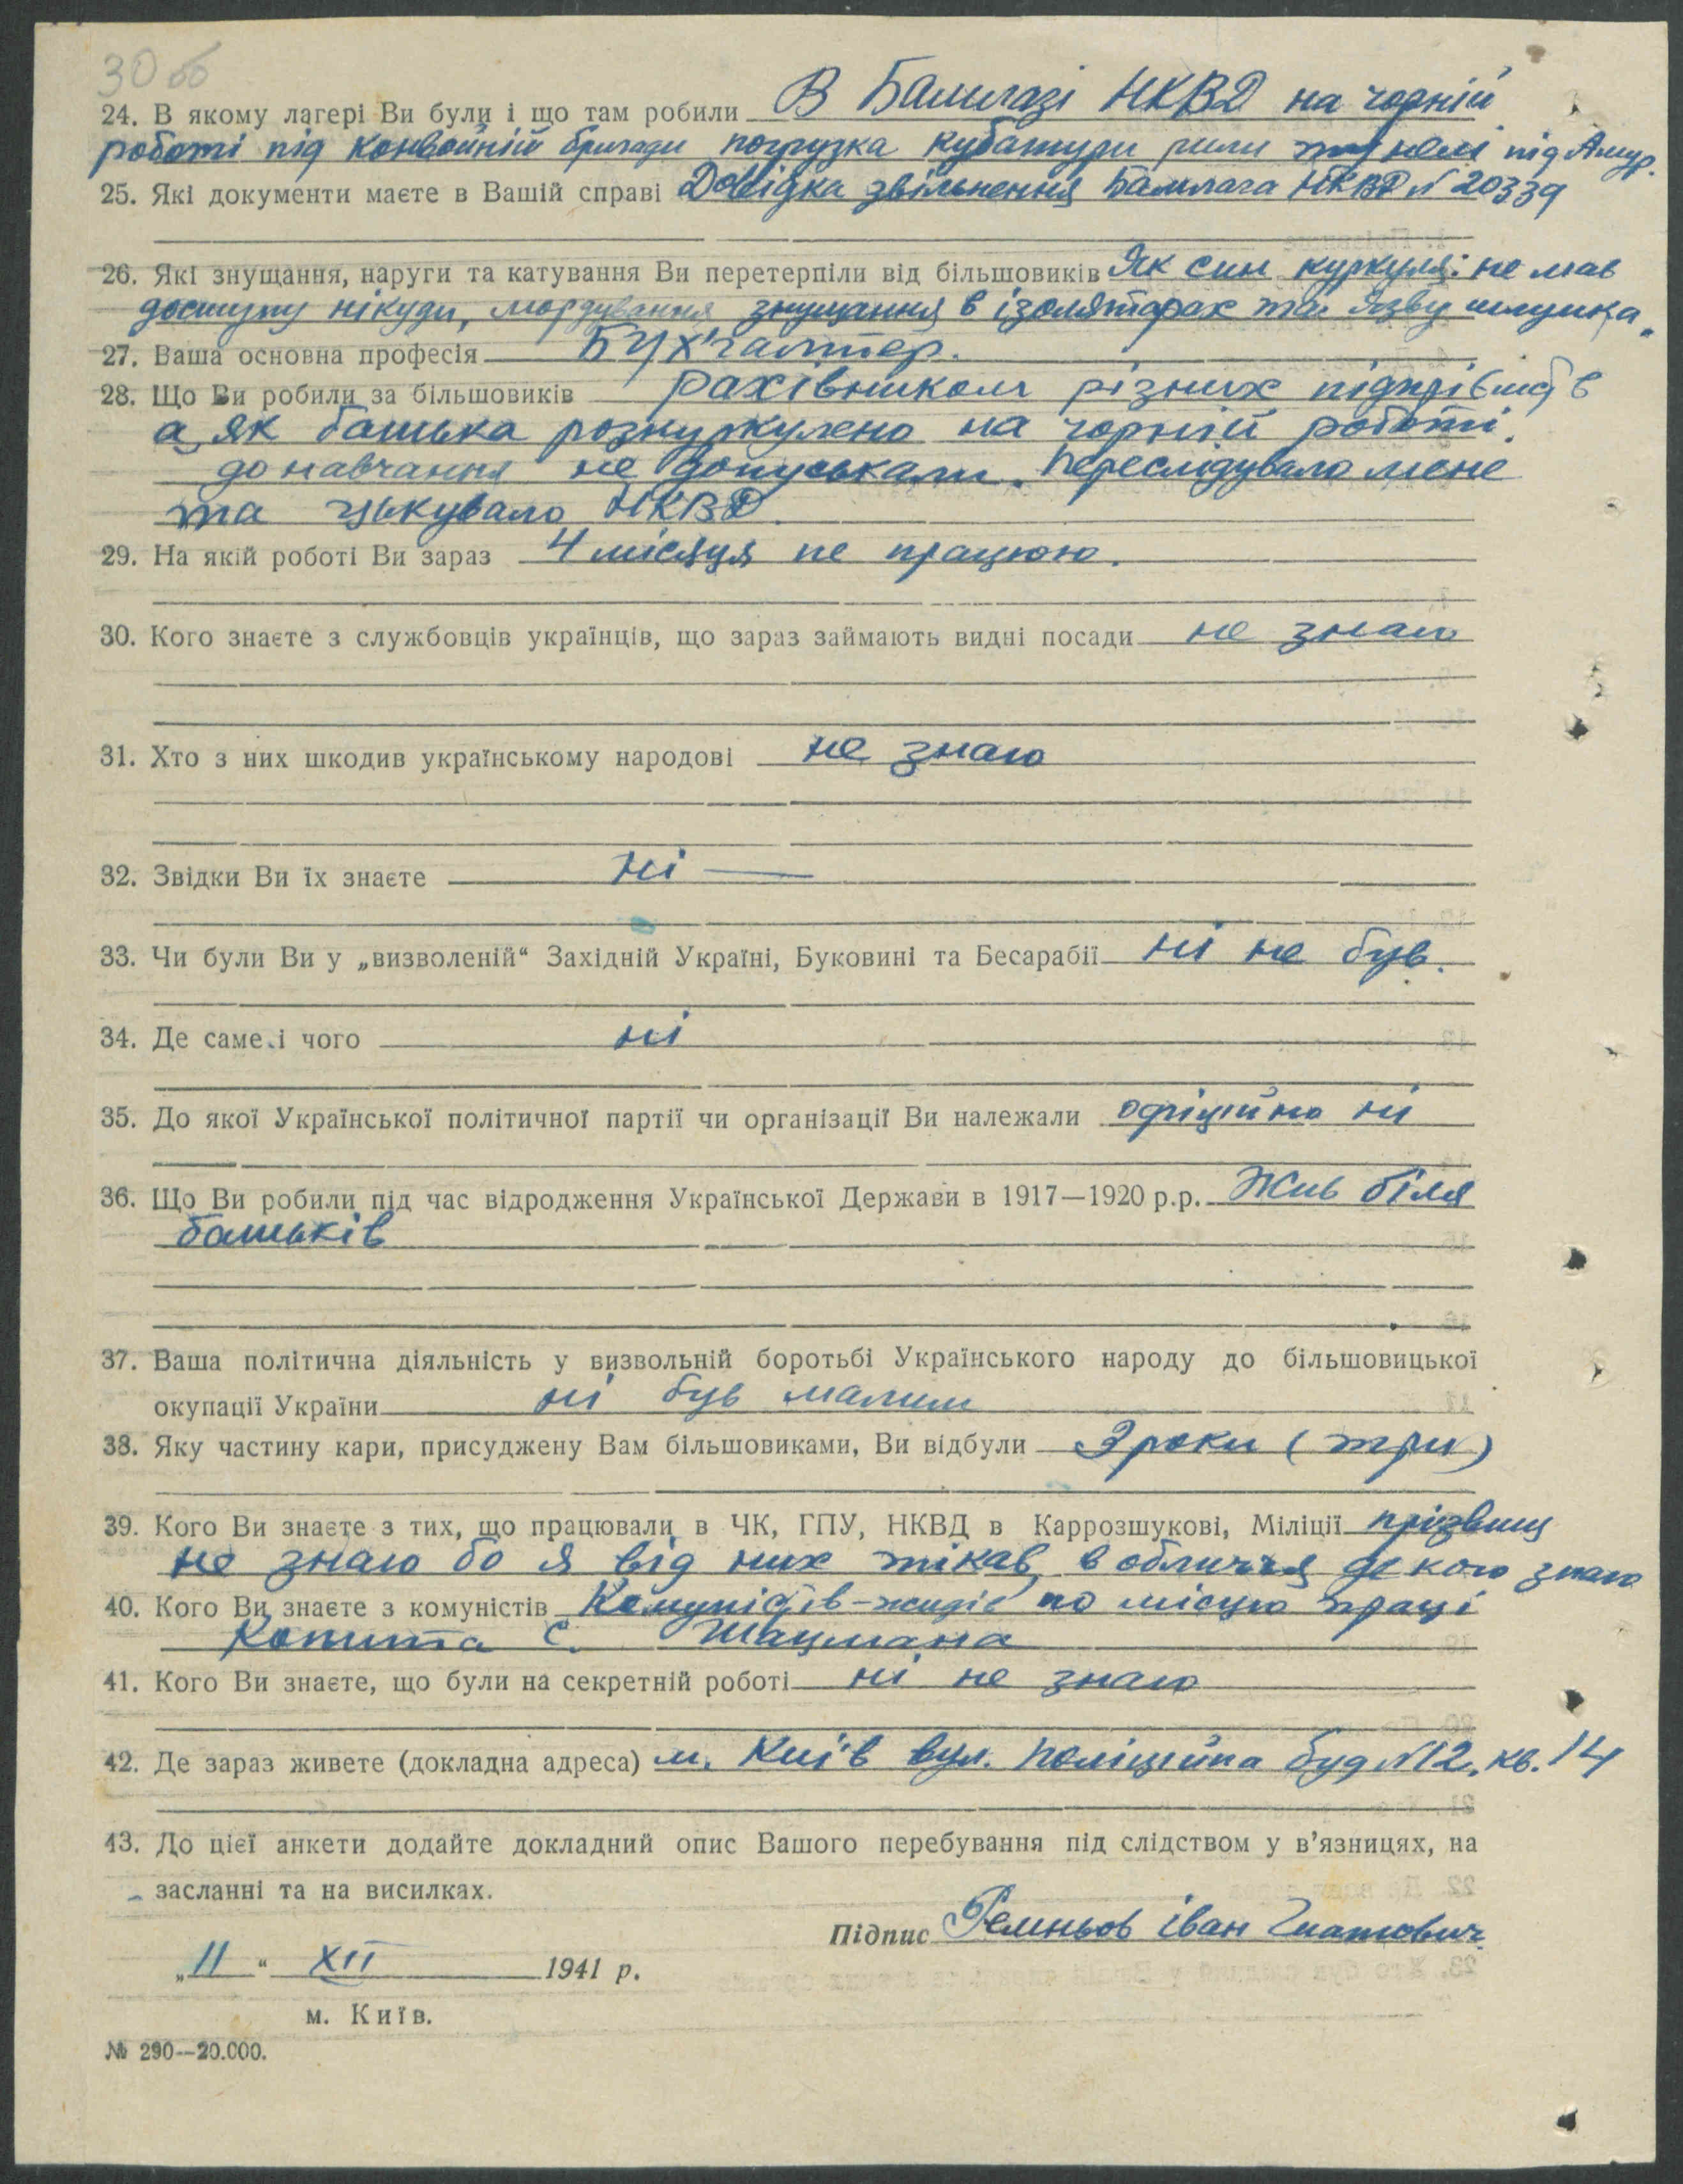 30 об
24. В якому лагері Ви були і що там робили В Бамлазі НКВД на чорній
роботі під конвойній бригади погрузка кубатури рили тунелі під Амур.
25. Які документи маєте в Вашій справі Довідка звільнення Бамлага НКВД № 20339
26. Які знущання, наруги та катування Ви перетерпіли від більшовиків Як син куркуля: не мав
доступу нікуди, мордування знущання в ізоляторах та язву шлунка.
27. Ваша основна професія Бухгалтер.
28. Що Ви робили за більшовиків рахівником різних підпріємств
а як батька розкуркулено на чорній роботі.
до навчання не допускали. Переслідувало мене
та цькувало НКВД.
29. На якій роботі Ви зараз 4 місяця не працюю.
30. Кого знаєте з службовців українців, що зараз займають видні посади не знаю
31. Хто з них шкодив українському народові не знаю
32. Звідки Ви їх знаєте ні —
33. Чи були Ви у „визволеній“ Західній Україні, Буковині та Бесарабії ні не був.
34. Де саме і чого ні
35. До якої Української політичної партії чи організації Ви належали офіційно ні
36. Що Ви робили під час відродження Української Держави в 1917—1920 р.р. Жив біля
батьків
37. Ваша політична діяльність у визвольній боротьбі Українського народу до більшовицької
окупації України ні був малим
38. Яку частину кари, присуджену Вам більшовиками, Ви відбули 3 роки (три)
39. Кого Ви знаєте з тих, що працювали в ЧК, ГПУ, НКВД в Каррозшукові, Міліції прізвищ
не знаю бо я від них тікав, в обличчя де кого знаю
40. Кого Ви знаєте з комуністів Комуністів-жидів по місцю праці
Копита С. Шацмана
41. Кого Ви знаєте, що були на секретній роботі ні не знаю
42. Де зараз живете (докладна адреса) м. Київ вул. Поліційна буд № 12, кв. 14
43. До цієї анкети додайте докладний опис Вашого перебування під слідством у в’язницях, на
засланні та на висилках.
Підпис Ремньов Іван Гнатович
„11“ XII 1941 р.
м. Київ.
№ 290—20.000.